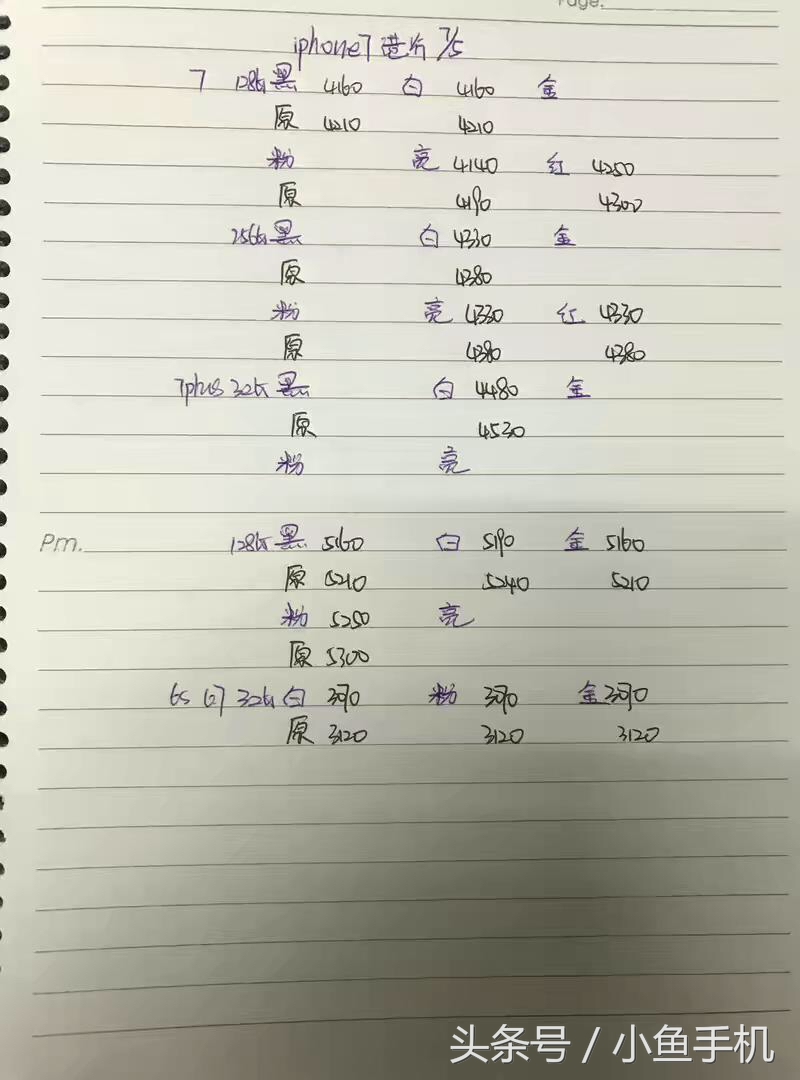 Page:
iphone7港行 7/5
7 128G黑 4160 白 4160 金
原 4210 4210
粉 亮 4140 红 4250
原 4190 4300
256G黑 白 4330 金
原 4380
粉 亮 4330 红 4330
原 4380 4380
7plus 32G黑 白 4480 金
原 4530
粉 亮
Pm. 128G黑 5160 白 5190 金 5160
原 5210 5240 5210
粉 5250 亮
原 5300
6s 32G白 3070 粉 3070 金 3070
原 3120 3120 3120
头条号 / 小鱼手机